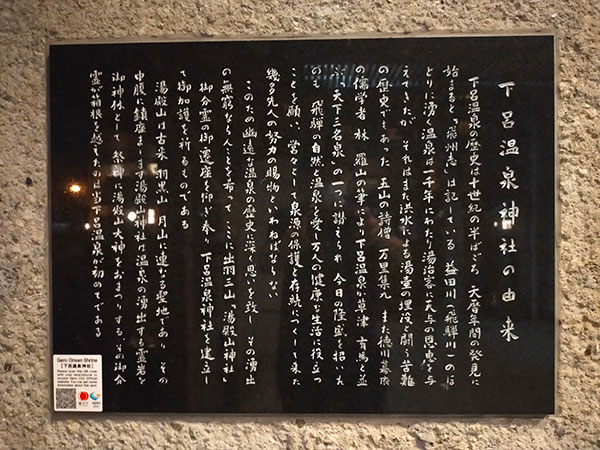 下呂温泉神社の由来
下呂温泉の歴史は十世紀の半ばごろ 天暦年間の発見に
始まると「飛州志」は記している 益田川(飛騨川)のほ
とりに湧く温泉は一千年にわたり湯治客に天与の恩恵を与
えてきたが、それはまた洪水による湯壷の埋没と闘う苦難
の歴史でもあった 五山の詩僧 万里集九 また徳川幕府
の儒学者 林 羅山の筆により下呂温泉が草津 有馬と並
ぶ「天下三名泉」の一つに謳えられ 今日の隆盛を招いた
のも 飛騨の自然と温泉を愛し万人の健康な生活に役立つ
ことを願い、営々として泉源の保護と存続につくして来た
幾多先人の努力の賜物といわねばならない
このため幽遠な温泉の歴史に深く思いを致し その湧出
の無窮ならんことを希って ここに出羽三山「湯殿山神社」
御分霊の御遷座を仰ぎ奉り 下呂温泉神社を建立し
て御加護を祈るものである
湯殿山は古来 羽黒山 月山に連なる聖地であり その
中腹に鎮座まします湯殿山神社は温泉の湧出する霊岩を
御神体として 祭神に湯殿山大神をおまつりする その御分
霊が箱根を越えたのは当下呂温泉が初めてである
Gero Onsen Shrine
【下呂温泉神社】